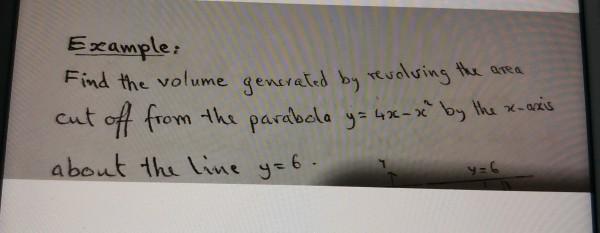 Example:
Find the volume generated by revolving the area
cut off from the parabola y = 4x - x² by the x-axis
about the line y = 6.
y y=6